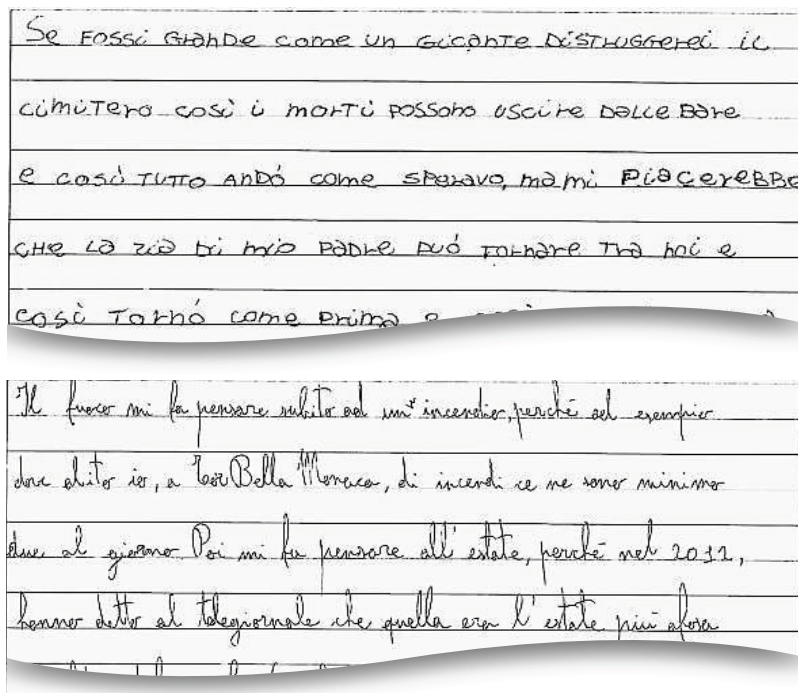 Se FOSSi GRANDE come un GiGANTE DiSTRUGGEREi iL
cimiTero così i morTi POSSONO USCiRE DALLE BARE
e così TUTTO ANDÓ come SPERAVO, ma mi PiACEREBBE
CHE LA ZiA Di MiO PADRE PUÓ TORNARE TRA NOi e
COSì TORNÓ COME PRiMA e
Il fuoco mi fa pensare subito ad un' incendio, perché ad esempio
dove abito io, a Tor Bella Monaca, di incendi ce ne sono minimo
due al giorno. Poi mi fa pensare all' estate, perché nel 2012,
hanno detto al telegiornale che quella era l' estate più afosa